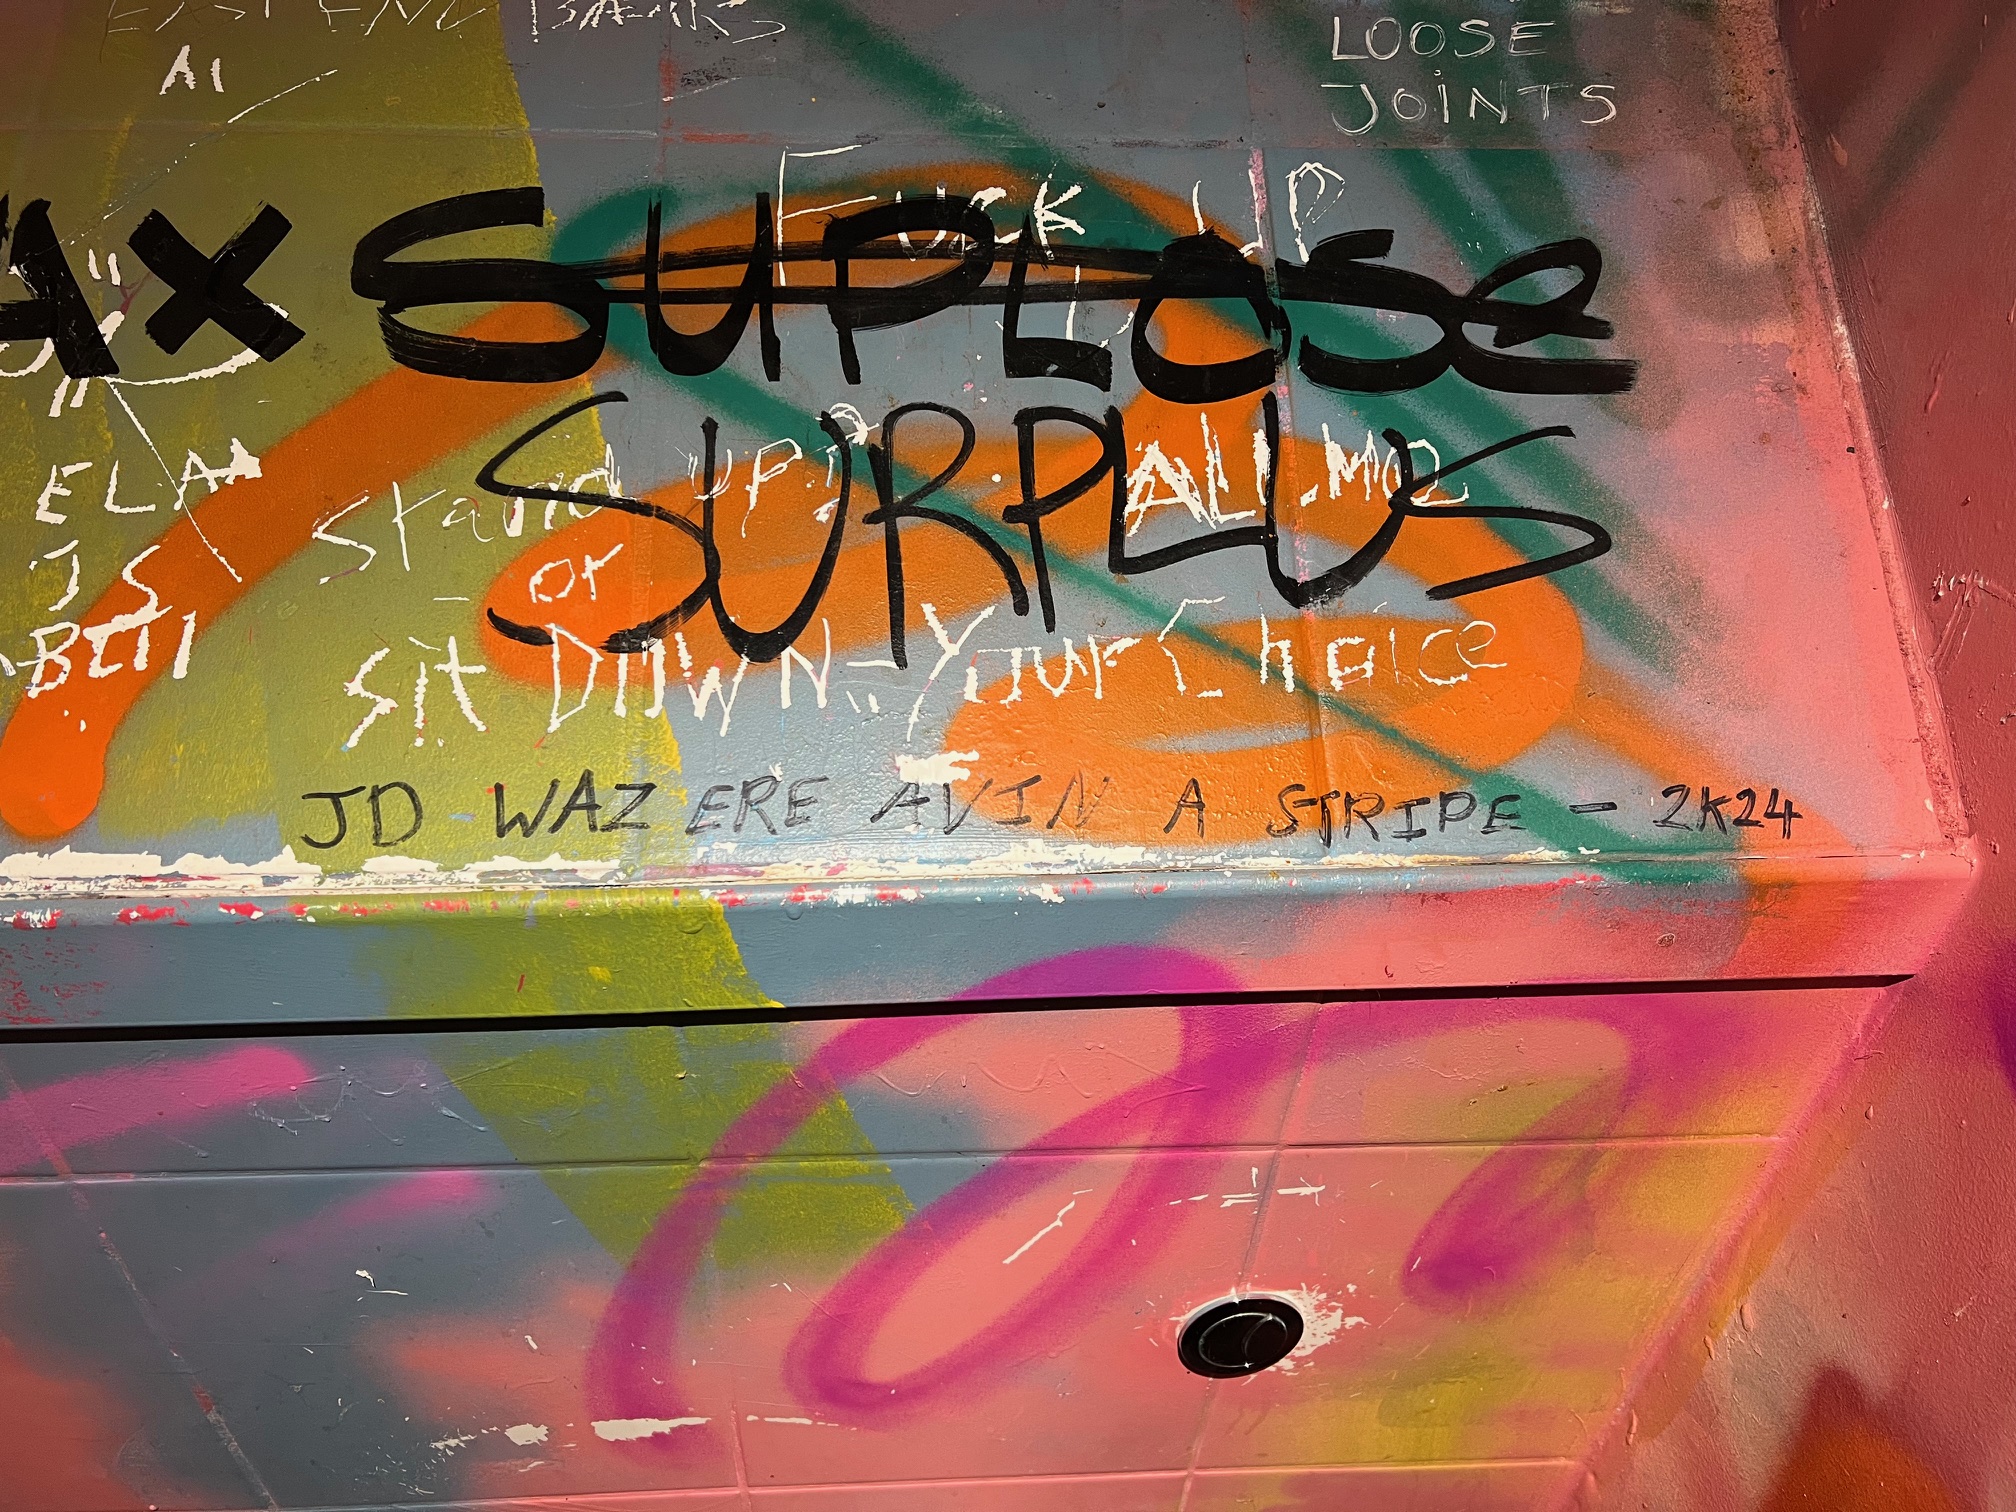 EAST END BANKS
AI
LOOSE
JOiNTS
FUCK UP
AX SUPLOSE
SURPLUS
ELA
Stand UP? ALL.MO2
JS
or
BEll
Sit DOWN... Your Choice
JD WAZ ERE AVIN A STRIPE - 2K24